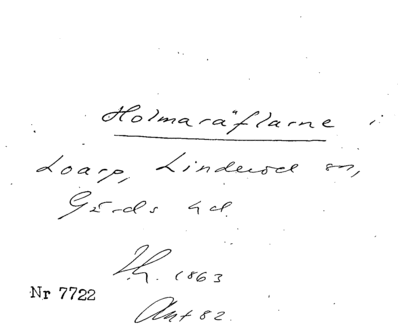 Holmaräflarne i
Loarp, Linderöd sn,
Gärds hd.
Th. 1863
Nr 7722
Ant 82